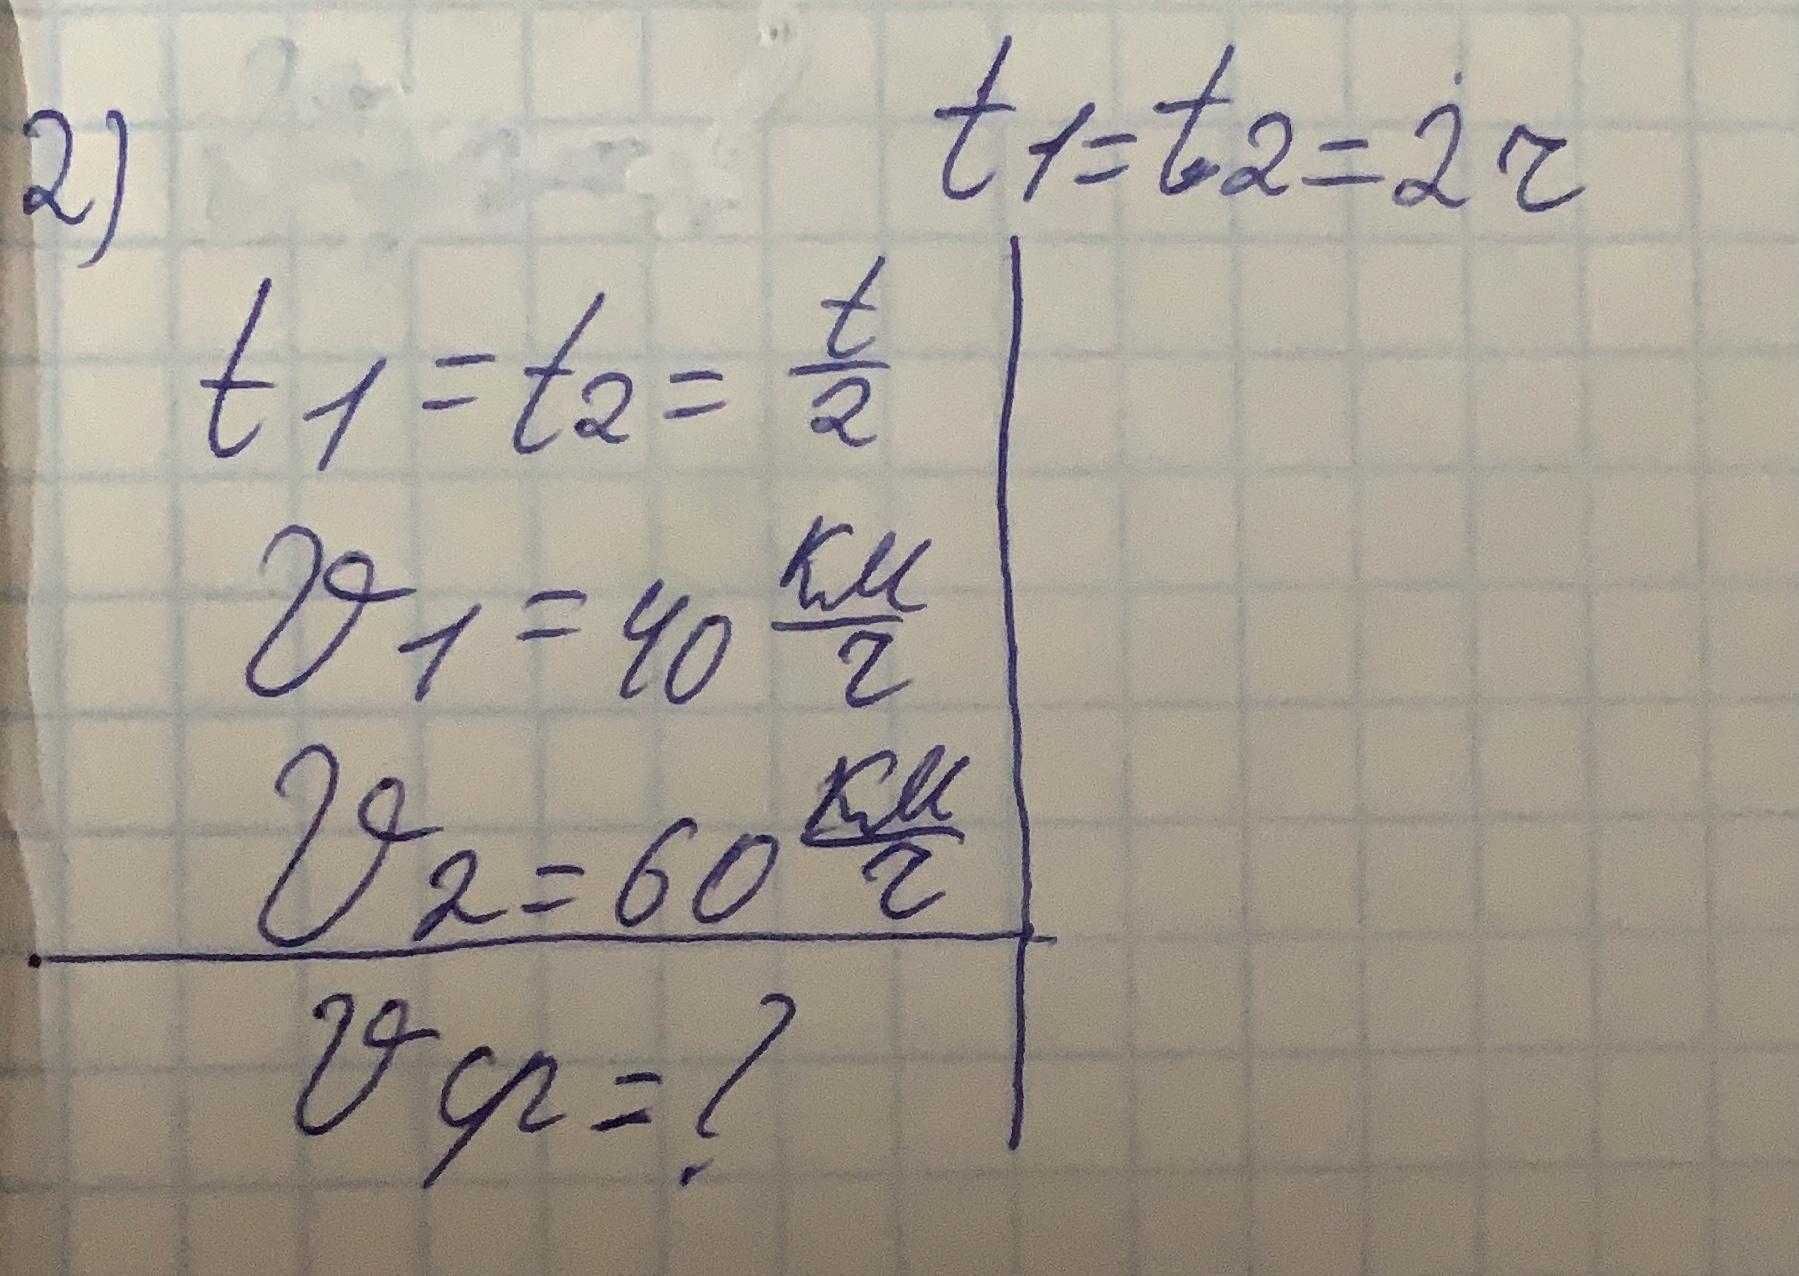 2)
t1=t2=2ч
t1=t2=t/2
υ1=40 км/ч
υ2=60 км/ч
υср=?